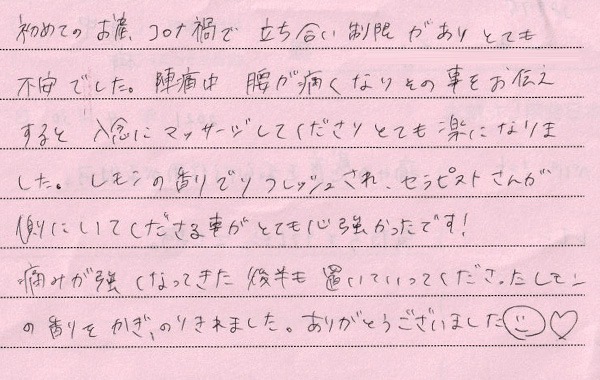 初めてのお産、コロナ禍で 立ち合い制限がありとても
不安でした。陣痛中 腰が痛くなりその事をお伝え
すると 入念にマッサージしてくださりとても楽になりま
した。レモンの香りでリフレッシュされ、セラピストさんが
側にいてくださる事がとても心強かったです!
痛みが強くなってきた後半も置いていってくださったレモン
の香りをかぎ、のりきれました。ありがとうございました